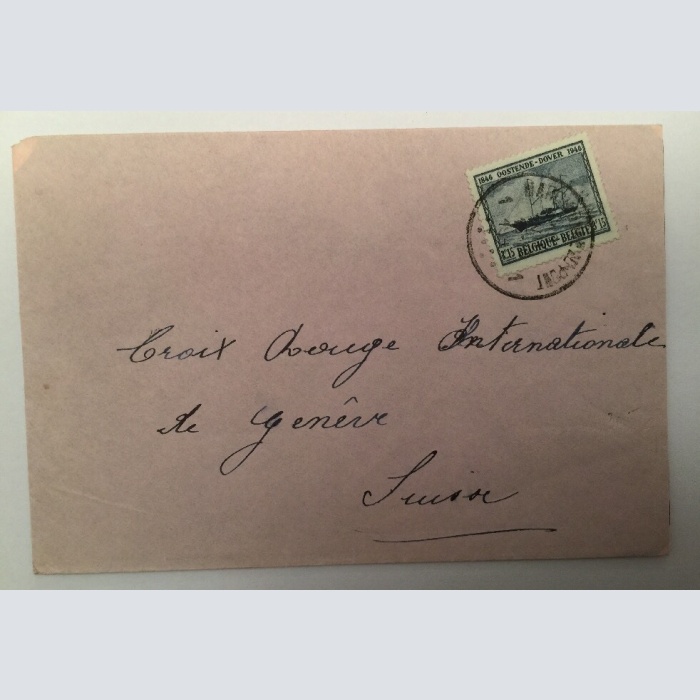 1846 OOSTENDE-DOVER 1946
BELGIQUE-BELGIE
Croix Rouge Internationale
de Genêve
Suisse